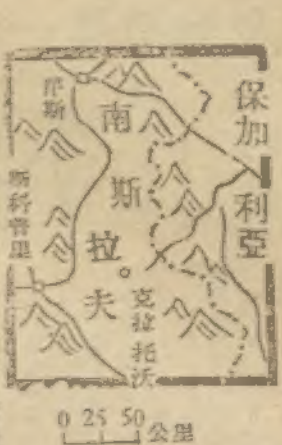 保加利亞
南斯拉夫
尼斯
斯科普里
克拉托沃
0 25 50 公里